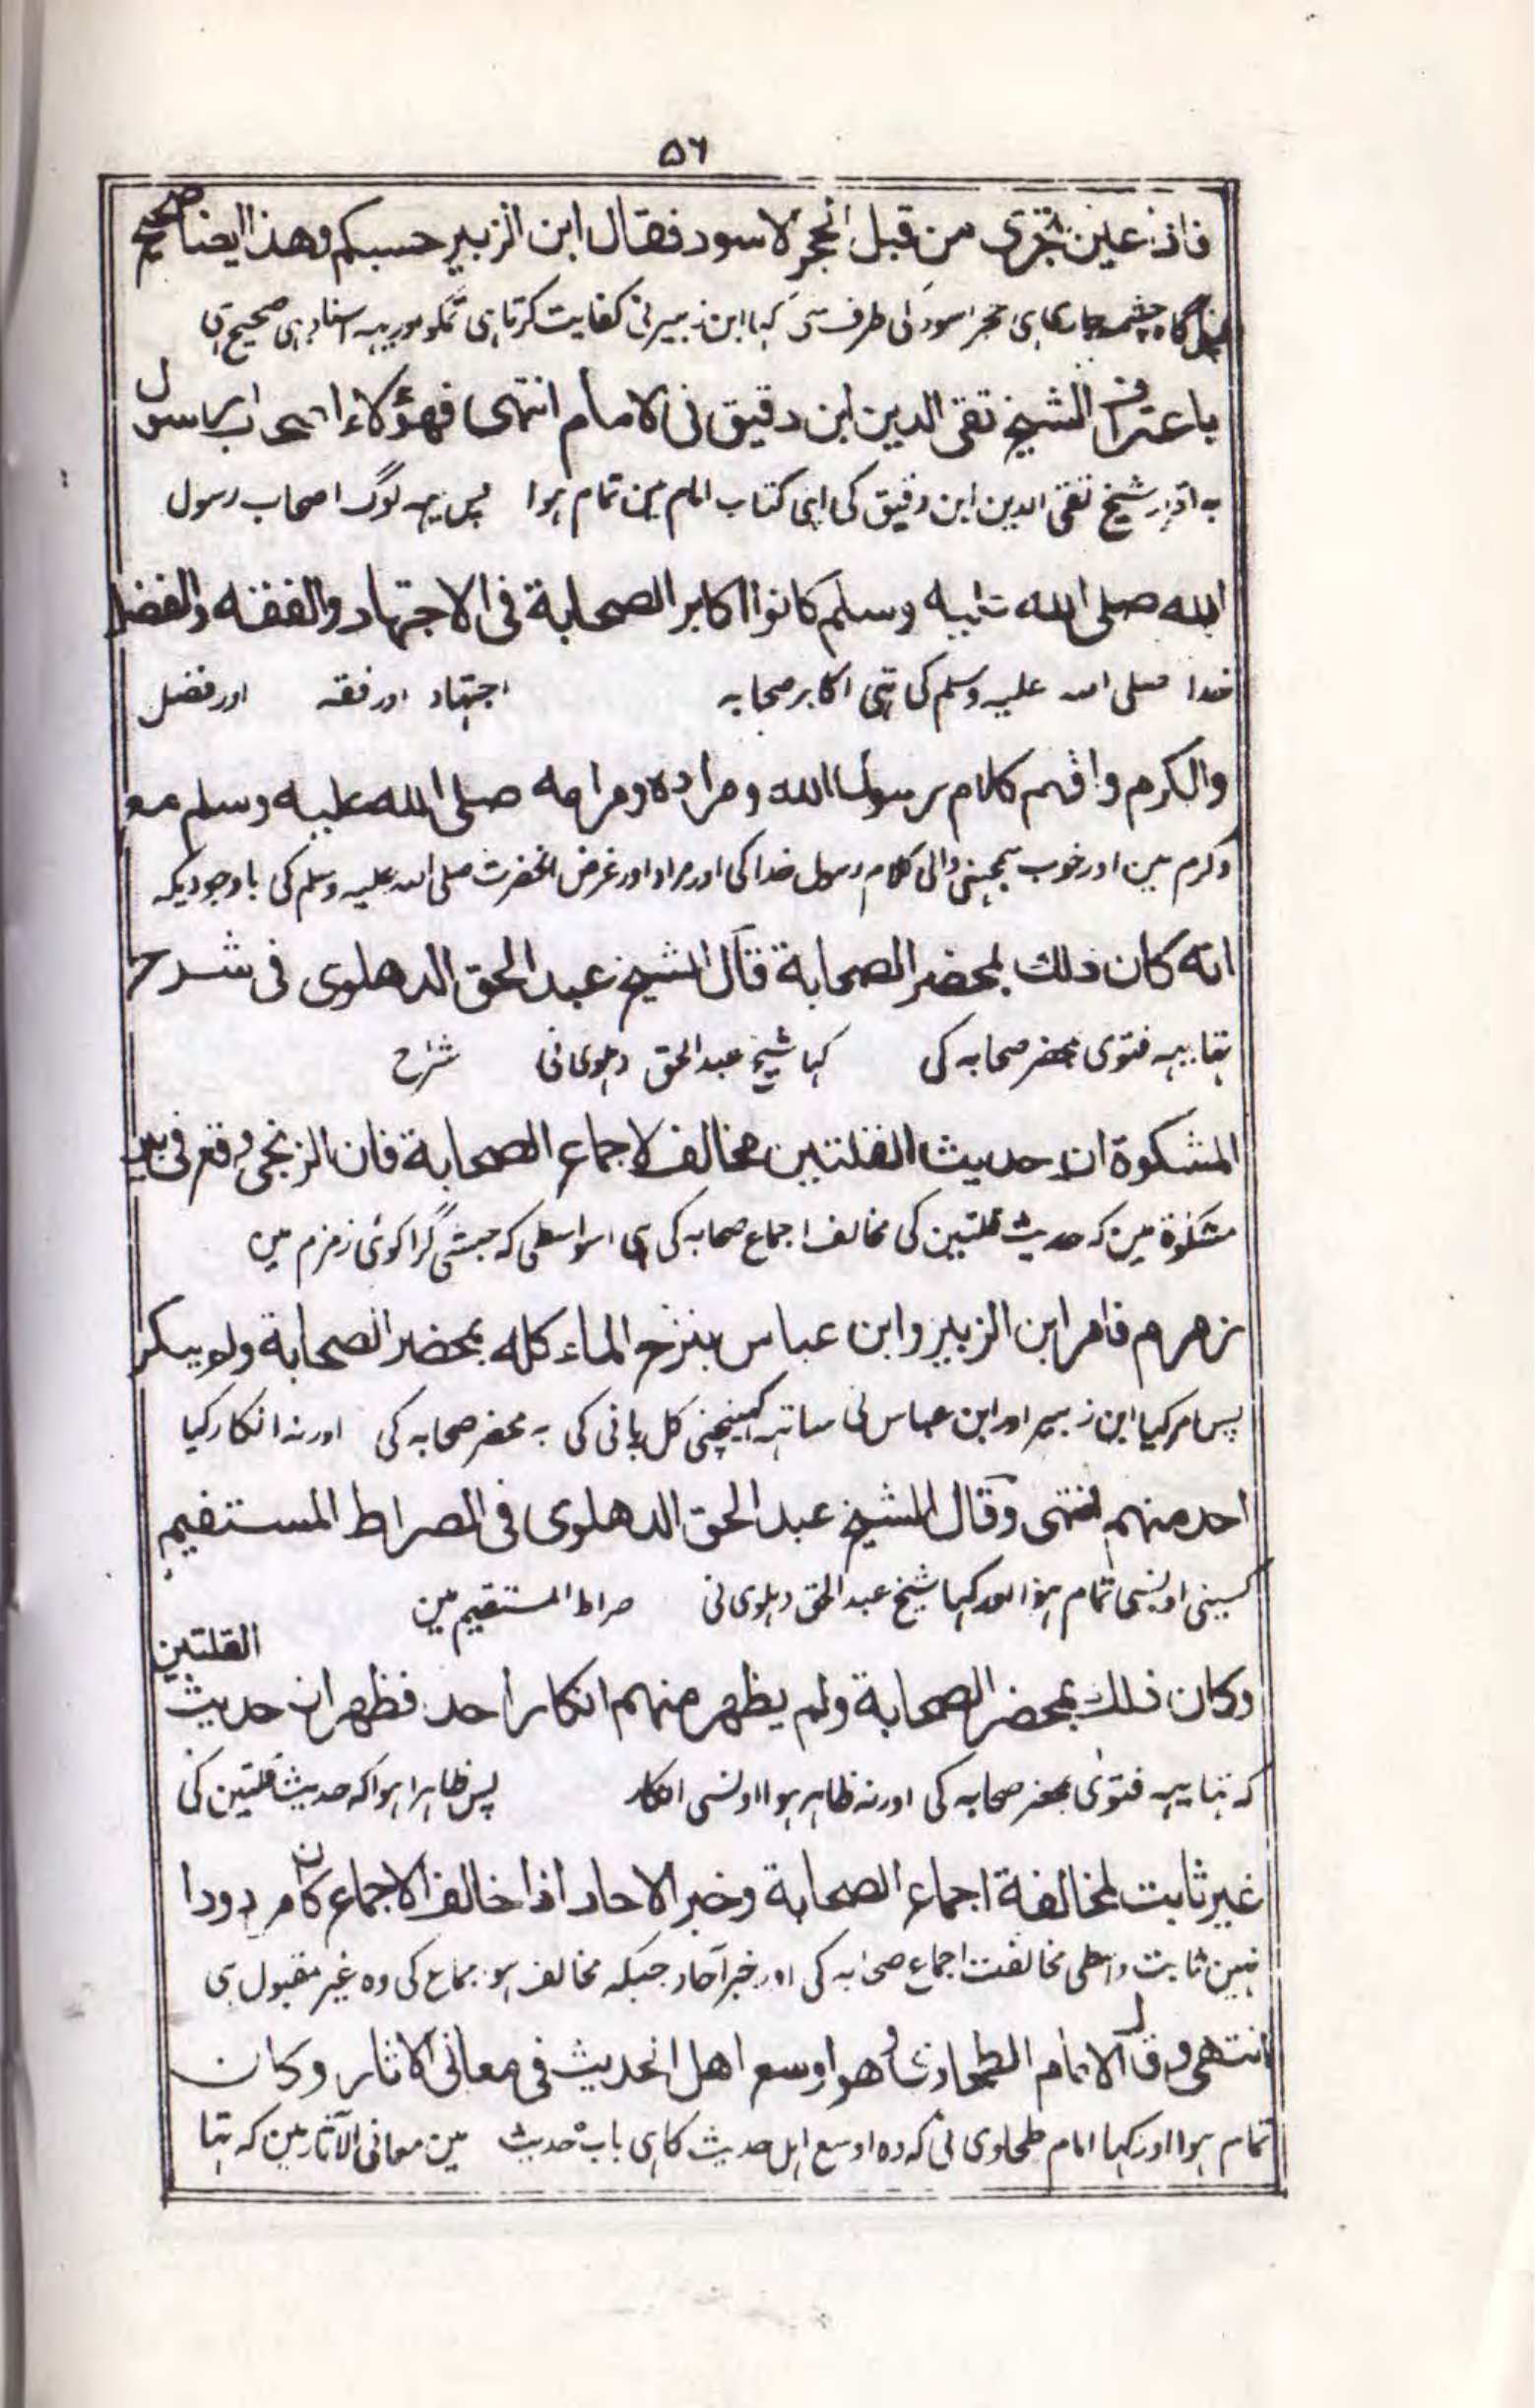 ۵۶
فاذا عين تجرى من قبل الحجر الاسود فقال ابن الزبير حسبكم وهذا ايضا صحيح
ناگاہ چشمہ جاری ہی حجر اسود کی طرف سی کہا ابن زبیر نی کفایت کرتا ہی تمکو اور یہہ اسناد ہی صحیح ہی
باعتراف الشيخ تقى الدين ابن دقيق فى الامام انتهى فهؤلاء اصحاب رسول
بہ اقرار شیخ تقی الدین ابن دقیق کی اپنی کتاب امام مین تمام ہوا پس یہہ لوگ اصحاب رسول
الله صلى الله عليه وسلم كانوا اكابر الصحابة فى الاجتهاد والفقه والفضل
خدا صلی اللہ علیہ وسلم کی تہی اکابر صحابہ اجتہاد اور فقہ اور فضل
والكرم وافهم كلام رسول الله ومراده ومرامه صلى الله عليه وسلم مع
وکرم مین اور خوب سمجہنی والی کلام رسول خدا کی اور مراد اور غرض آنحضرت صلی اللہ علیہ وسلم کی باوجودیکہ
انه كان ذلك بمحضر الصحابة قال الشيخ عبد الحق الدهلوى فى شرح
تہا یہہ فتوی بمحضر صحابہ کی کہا شیخ عبد الحق دہلوی نی شرح
المشكوة ان حديث القلتين مخالف لاجماع الصحابة فان الزنجى وقع فى بئر
مشکوٰة مین کہ حدیث قلتین کی مخالف اجماع صحابہ کی ہی اسواسطی کہ حبشی گرا کوئی زمزم مین
زمزم فامر ابن الزبير وابن عباس بنزح الماء كله بمحضر الصحابة ولم ينكر
پس امر کیا ابن زبیر اور ابن عباس نی ساتہہ کہینچنی کل پانی کی بہ محضر صحابہ کی اور نہ انکار کیا
احد منهم انتهى وقال الشيخ عبد الحق الدهلوى فى الصراط المستقيم
کسینی اونسی تمام ہوا اور کہا شیخ عبد الحق دہلوی نی صراط المستقیم مین
وكان ذلك بمحضر الصحابة ولم يظهر منهم انكار احد فظهر ان حديث القلتين
کہ تہا یہہ فتویٰ بمحضر صحابہ کی اور نہ ظاہر ہوا اونسی انکار پس ظاہر ہوا کہ حدیث قلتین کی
غير ثابت لمخالفة اجماع الصحابة وخبر الاحاد اذا خالف الاجماع كان مردودا
نہین ثابت واسطی مخالفت اجماع صحابہ کی اور خبر آحاد جبکہ مخالف ہو اجماع کی وہ غیر مقبول ہی
انتهى وقال الامام الطحاوى وهو اوسع اهل الحديث فى معانى الاثار وكان
تمام ہوا اور کہا امام طحاوی نی کہ وہ اوسع اہل حدیث کا ہی باب حدیث مین معانی الآثار مین کہ تہا